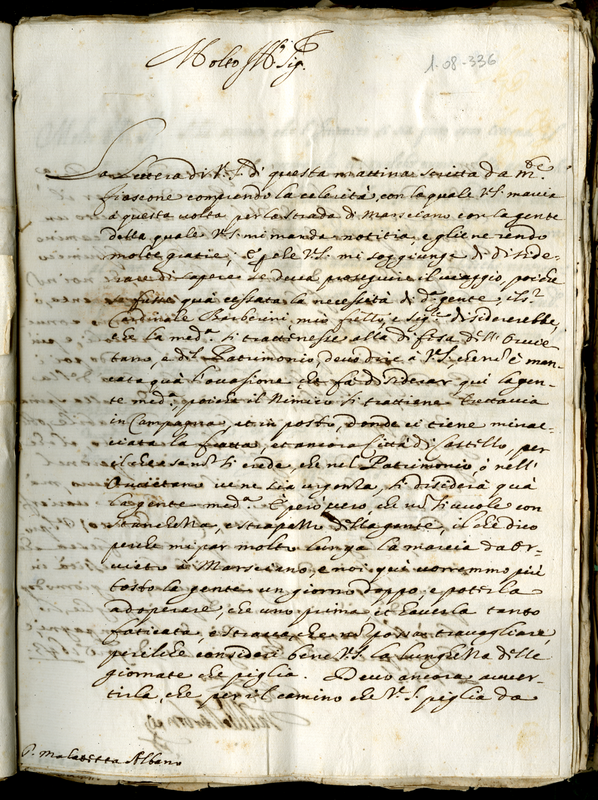 Molto Ill.re Sig.re
1.08-336
La Lettera di V.S. di questa mattina scritta da m.te
fiascone comprendo la celerità, con la quale V.S. marcia
à questa volta per la strada di Marsciano con la gente
della quale V.S. mi manda notitia, e gliene rendo
molte gratie; E perche V.S. mi soggiunge di deside-
rare di sapere se deva proseguire il viaggio, poiche
se fusse quà cessata la necessità di d.a gente, il S.r
Cardinale Barberini mio fr̃ello, e sig.re desidererebbe,
che la med.a si trattenesse alla difesa dell' Orvie-
tano, e del Patrimonio, devo dire à V.S. che nõ è man-
cata quà l'occasione che fà desiderar qui la gen-
te med.a, poiche il Nimico si trattiene tuttavia
in Campagna, et in posto, donde ci tiene minac-
ciata la fratta, et ancora Città di Castello, per
il che se nõ si crede, che nel Patrimonio, ò nell'
Orvietano ve ne sia urgenza, si desidera quà
la gente med.a. È però vero, che nõ si vuole con
stanchezza, e strapazzo della gente, il che dico
perche mi par molto lunga la marcia da Or-
vieto à Marsciano, e noi quì vorremmo più
tosto la gente un giorno doppo, e poterla
adoperare, che uno prima, et haverla tanto
faticata, e stracca, che nõ possa travagliare,
perilche consideri bene V.S. la lunghezza delle
giornate che piglia. Devo ancora avver-
tirla, che per il camino che V.S. piglia da
P. Malatesta Albano